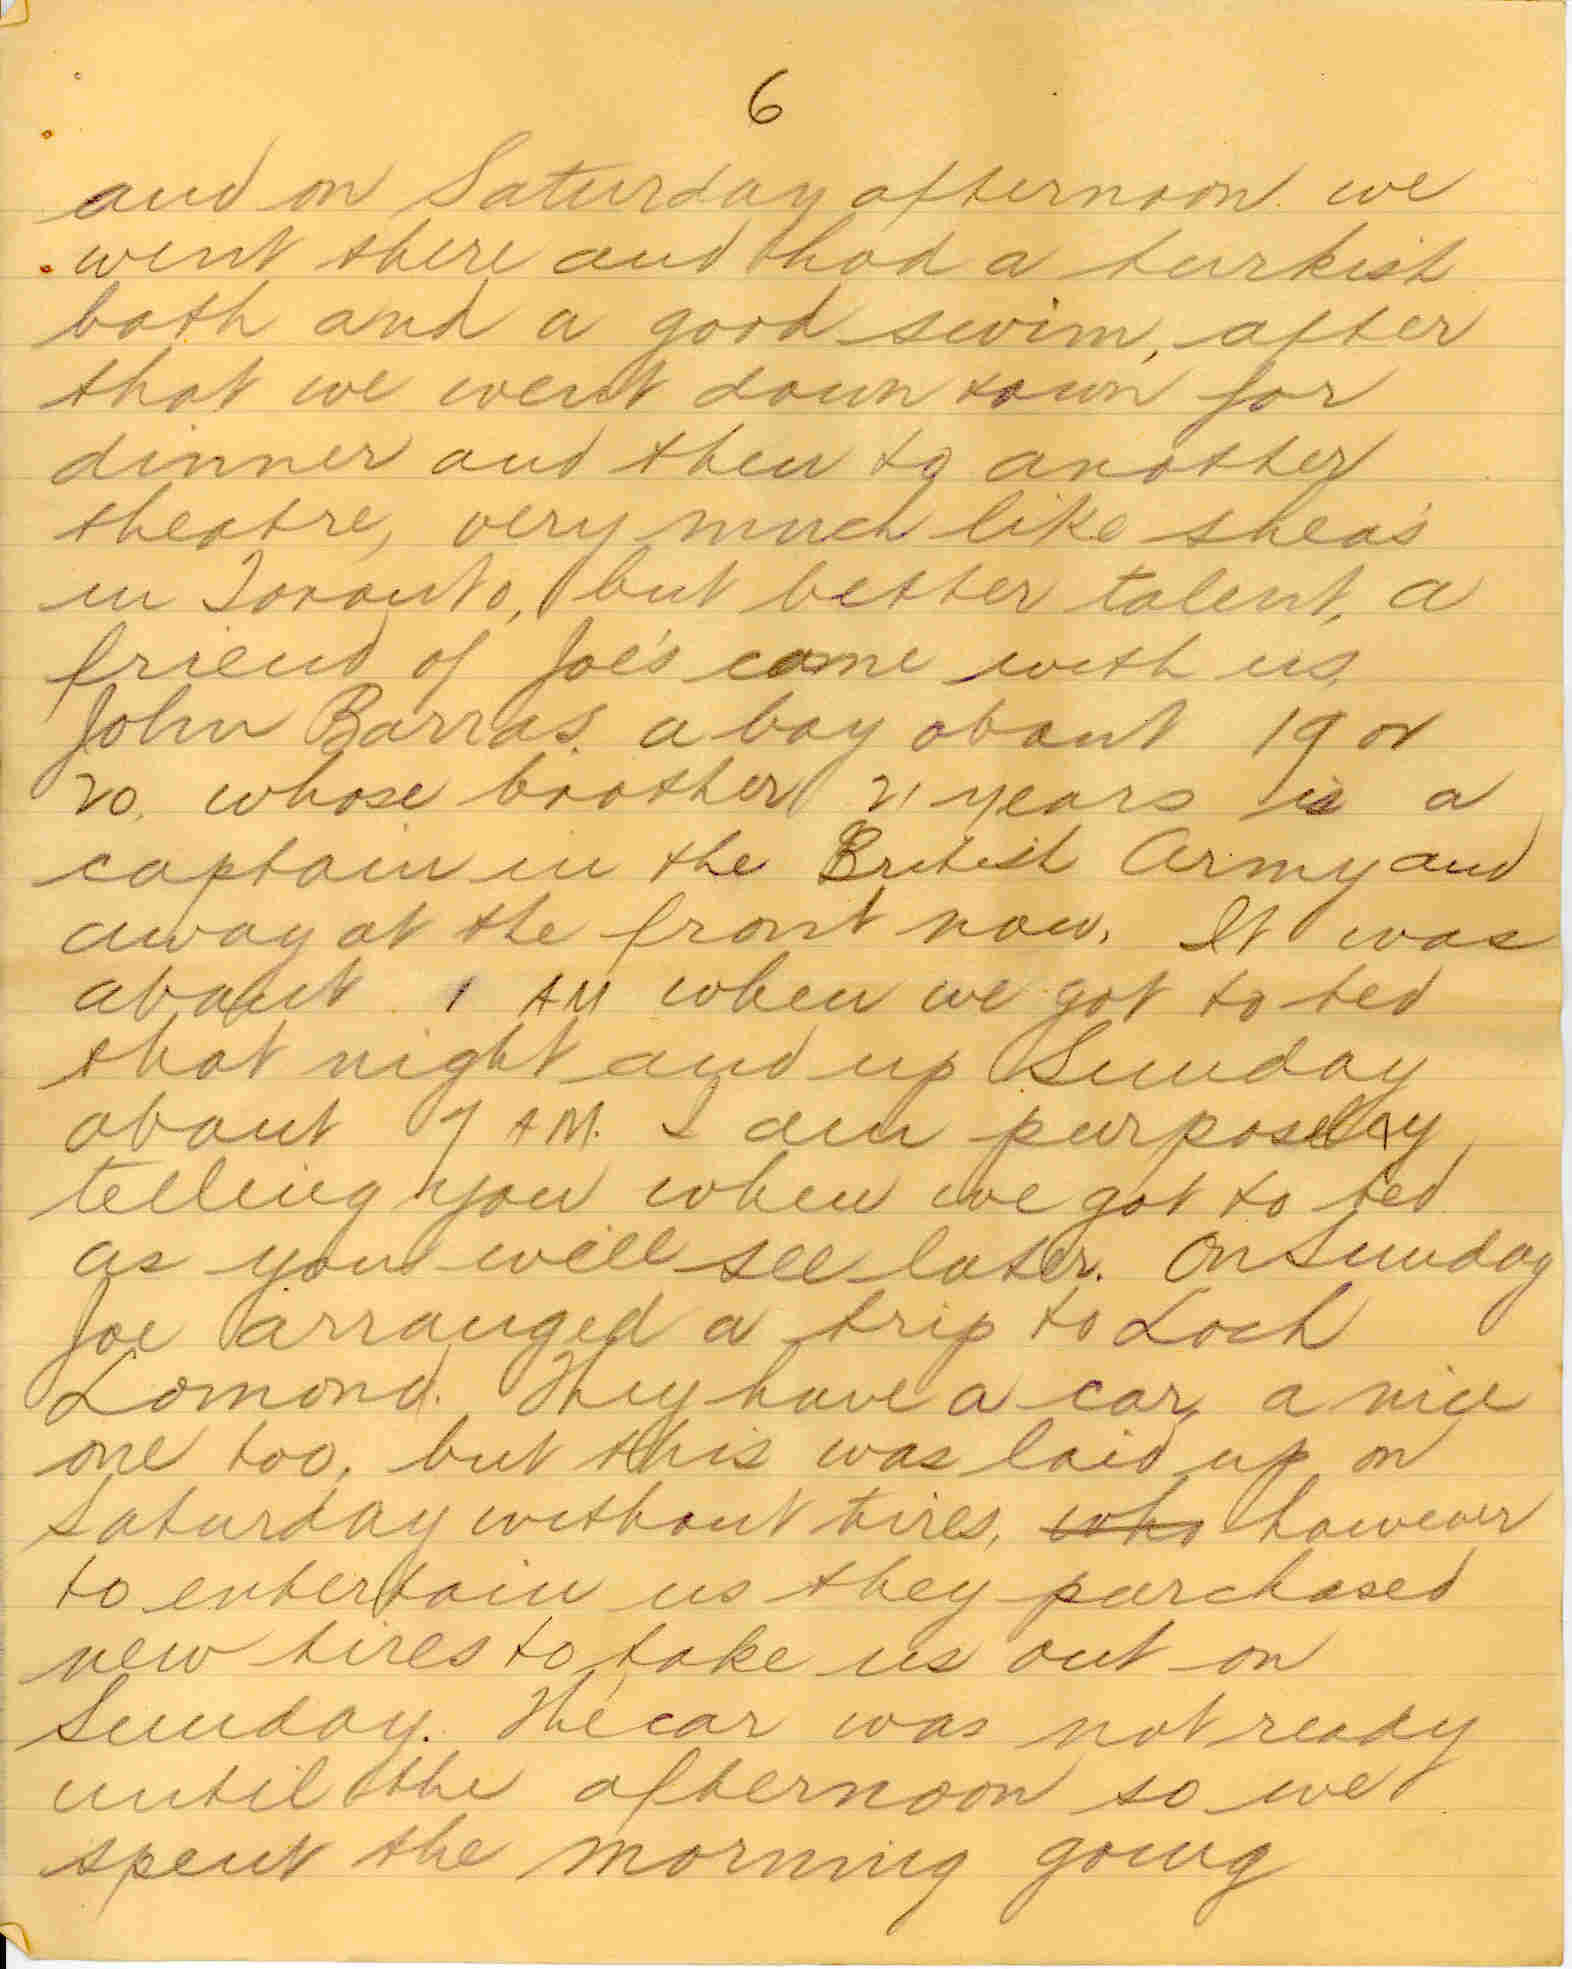 6
and on Saturday afternoon we
went there and had a turkish
bath and a good swim, after
that we went down town for
dinner and then to another
theatre, very much like shea's
in Toronto, but better talent, a
friend of Joe's came with us,
John Barras. a boy about 19 or
20. whose brother 21 years is a
captain in the British Army and
away at the front now. It was
about 1 AM when we got to bed
that night and up Sunday
about 7 AM. I am purposely
telling you when we got to bed
as you will see later. On Sunday
Joe arranged a trip to Loch
Lomond. They have a car, a nice
one too, but this was laid up on
Saturday without tires, who however
to entertain us they purchased
new tires to take us out on
Sunday. The car was not ready
until the afternoon so we
spent the morning going